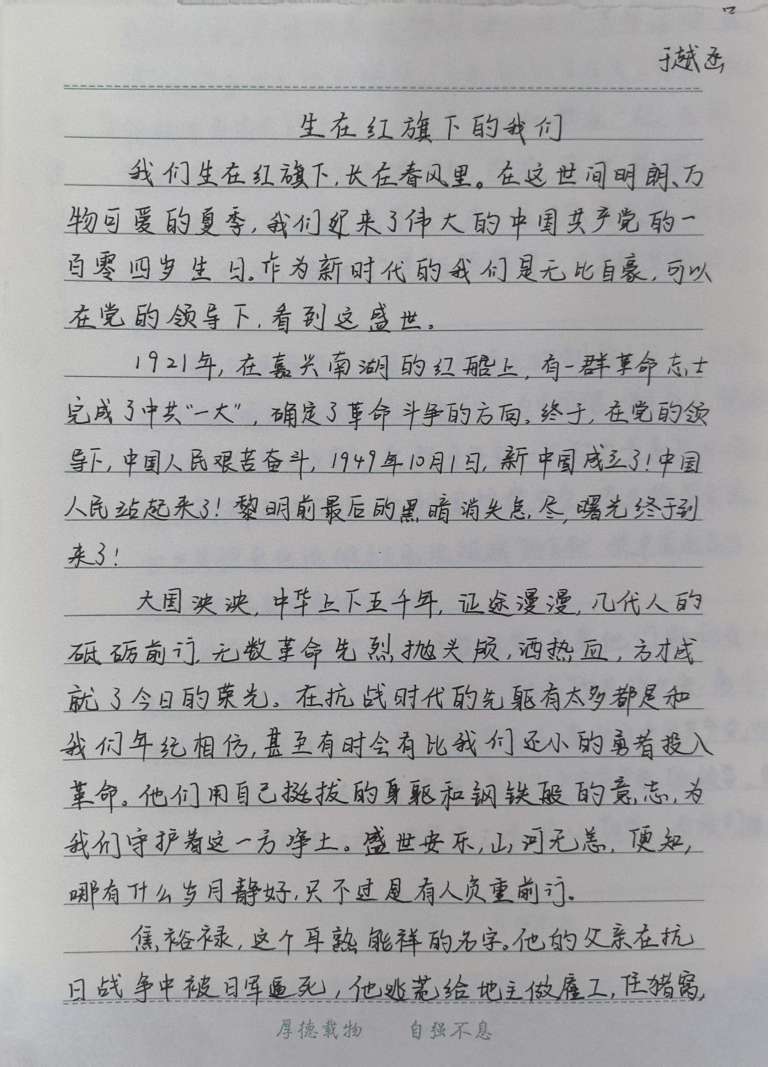 于越丞
生在红旗下的我们
我们生在红旗下，长在春风里。在这世间明朗、万
物可爱的夏季，我们迎来了伟大的中国共产党的一
百零四岁生日。作为新时代的我们是无比自豪，可以
在党的领导下，看到这盛世。
1921年，在嘉兴南湖的红船上，有一群革命志士
完成了中共“一大”，确定了革命斗争的方向。终于，在党的领
导下，中国人民艰苦奋斗，1949年10月1日，新中国成立了！中国
人民站起来了！黎明前最后的黑暗消失怠尽，曙光终于到
来了！
大国泱泱，中华上下五千年，证途漫漫，几代人的
砥砺前行，无数革命先烈抛头颅，洒热血，方才成
就了今日的荣光。在抗战时代的先驱有太多都是和
我们年纪相仿，甚至有时会有比我们还小的勇者投入
革命。他们用自己挺拔的身躯和钢铁般的意志，为
我们守护着这一方净土。盛世安乐，山河无恙，便知，
哪有什么岁月静好，只不过是有人负重前行。
焦裕禄，这个耳熟能祥的名字。他的父亲在抗
日战争中被日军逼死，他逃荒给地主做雇工，住猪窝，
厚德载物 自强不息